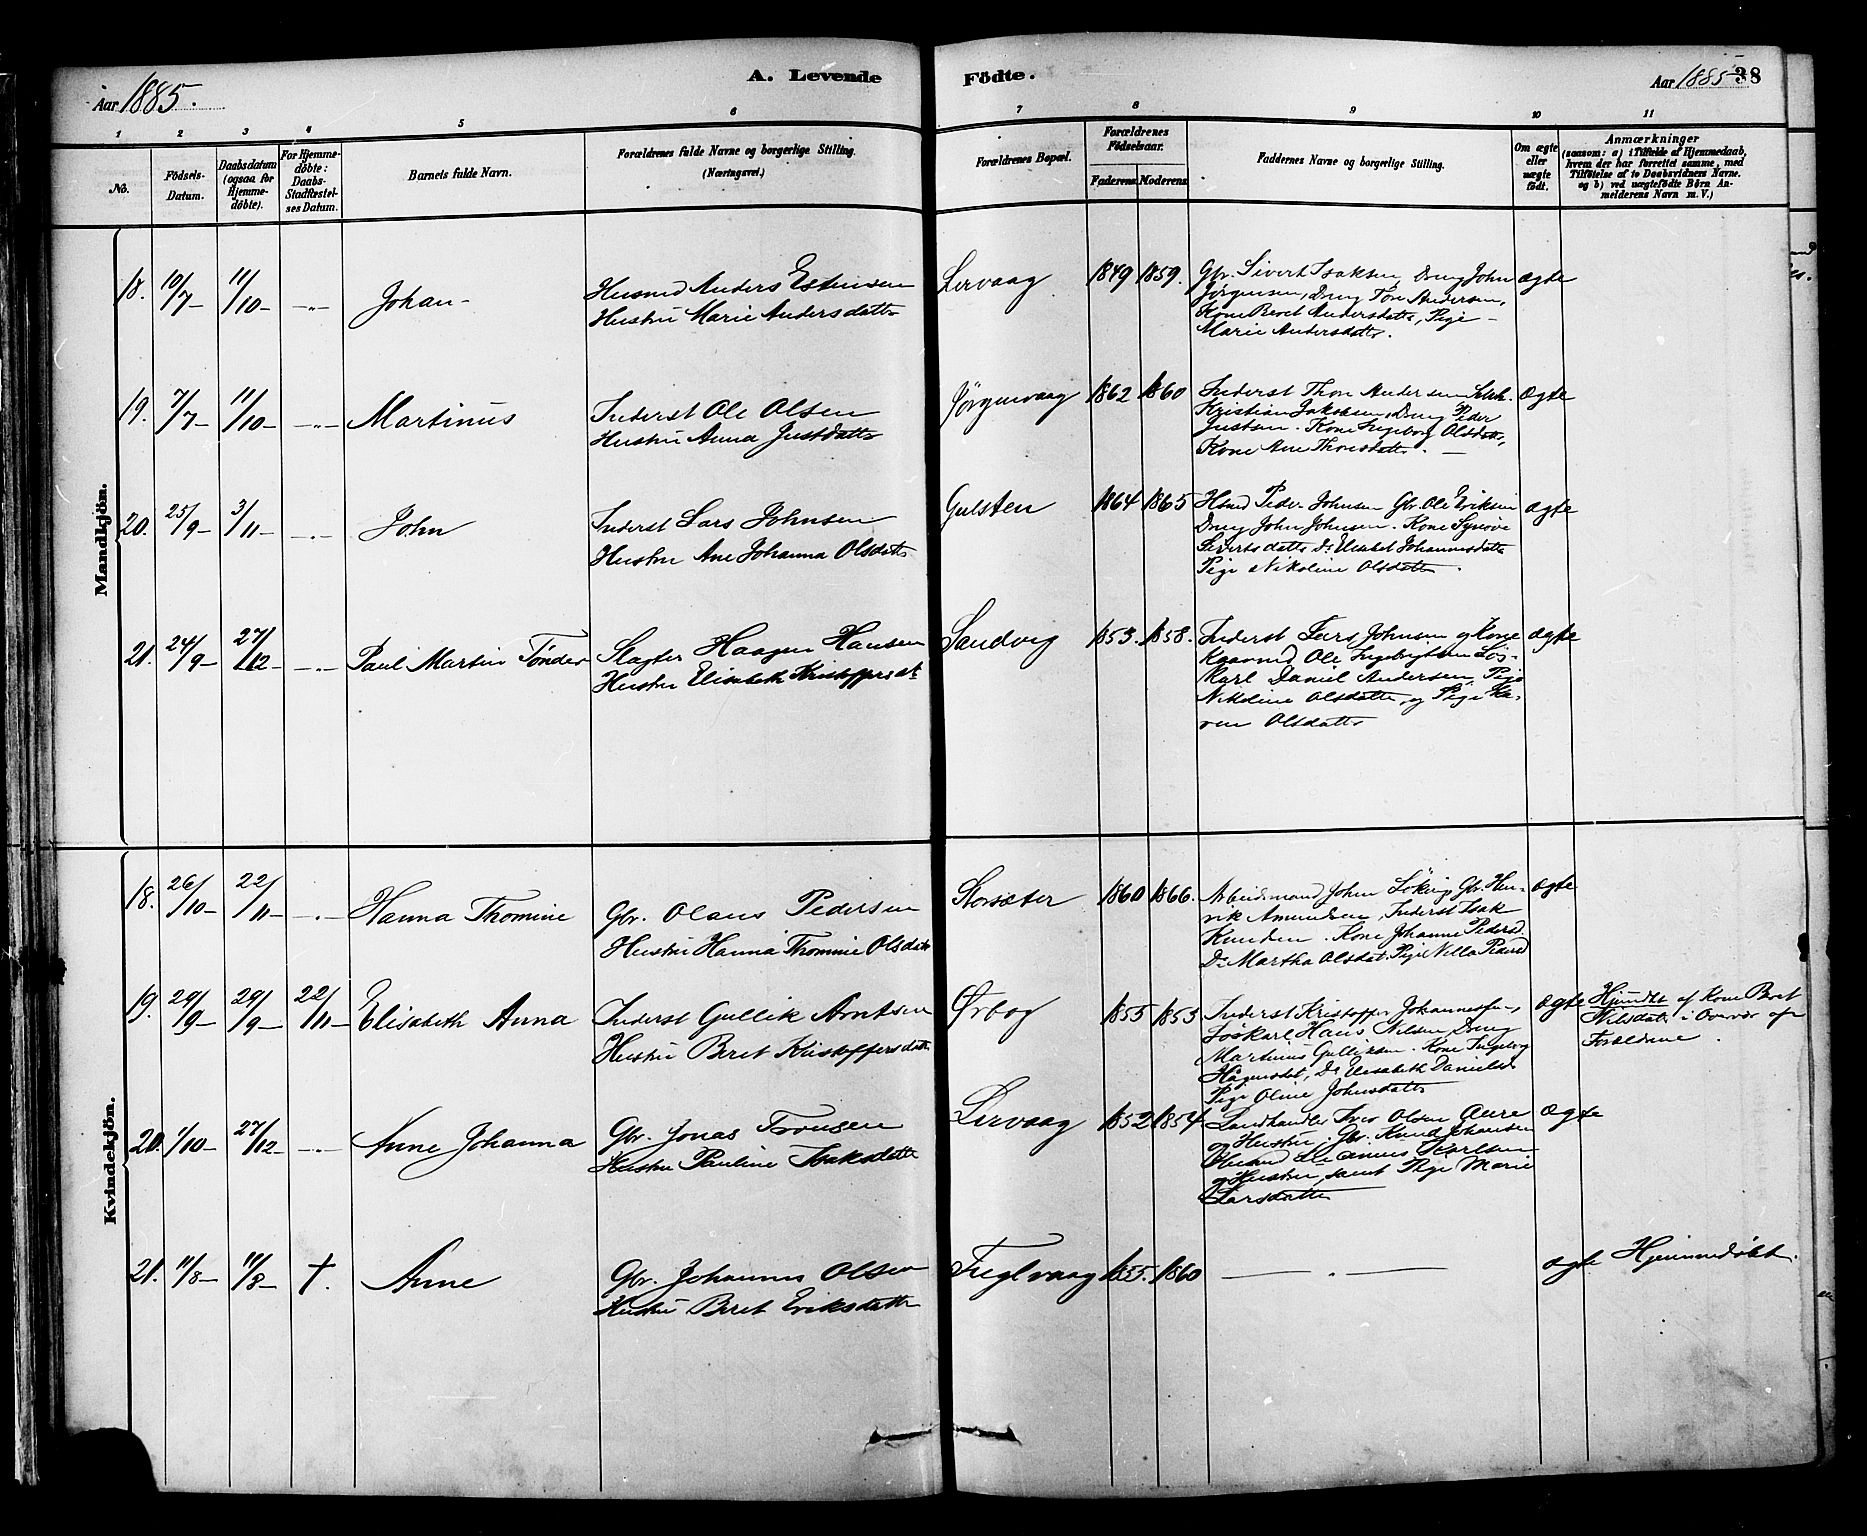 Aar 1885.
A. Levende
Födte.
Aar 1885
38
1 2 3 4 5 6 7 8 9 10 11
No.
Födsels-
Datum.
Daabsdatum
(ogsaa for
Hjemme-
döbte).
For Hjemme-
döbte:
Daabs-
Stadfæstel-
ses Datum.
Barnets fulde Navn.
Forældrenes fulde Navne og borgerlige Stilling.
(Næringsvei.)
Forældrenes Bopæl.
Forældrenes
Födselsaar.
Faderens
Moderens
Faddernes Navne og borgerlige Stilling.
Om ægte
eller
uægte
födt.
Anmærkninger
(saasom: a) i Tilfælde af Hjemmedaab,
hvem der har forrettet samme, med
Tilföielse af to Daabsvidners Navne.
og b) ved uægtefödte Börn An-
melderens Navn m. V.)
Mandkjön.
18. 10/7 11/10 Johan
Husmd Anders Estensen
Hustru Marie Andersdatter
Lervaag 1849 1859.
Gbr. Sivert Isaksen, Dreng John
Jørgensen, Dreng Tore Andersen,
Kone Beret Andersdatter, Pige
Marie Andersdatter.
ægte
19. 7/7 11/10 Martinus
Inderst Ole Olsen
Hustru Anna Justdatter
Jørgenvaag 1862 1860
Inderst Thore Andersen
Kristian Jakobsen, Dreng Peder
Justsen. Kone Ingeborg Olsdatter,
Kone Ane Thoresdatter.
Ægte
20. 25/9 3/11 John
Inderst Lars Johnsen
Hustru Ane Johanna Olsdatter
Gulsten 1864 1865
Hsmd Peder Johnsen Gbr. Ole Eriksen
Dreng John Johnsen. Kone Synøve
Sivertsdatter Do Elisabet Johannesdatter
Pige Nikoline Olsdatter.
ægte
21. 24/9 27/12 Paul Martin Tønder
Slagter Haagen Hansen
Hustru Elisabeth Kristoffersdt
Sandvig 1853. 1858.
Inderst Lars Johnsen og Kone
Ole Ingebrigtsen Løs-
karl Daniel Andersen, Pige
Nikoline Olsdatter, og Pige Ka-
ren Olsdatter
ægte
Kvindekjön.
18. 26/10 22/11 Hanna Thomine
Gbr. Olaus Pedersen
Hustru Hanna Thomine Olsdatter
Storsæter 1860 1866.
Arbeidsmand John Löking Gbr. Hen-
rik Amundsen, Inderst Isak
Knudsen. Kone Johanne Pedersd
Do Martha Olsdat. Pige Nella Pedersd
ægte
19. 29/9 29/9 22/11 Elisabeth Anna
Inderst Gullik Arntsen
Hustru Beret Kristoffersdatter
Ørbog 1855 1853
Inderst Kristoffer Johannessen,
Løskarl Hans Nilsen, Dreng
Martinus Gulliksen. Kone Ingeborg
Hagensdat, Do Elisabeth Danielsd
Pige Oline Johnsdatter
ægte
Hjmdbt af Kone Beret
Nilsdat i Overvær af
Forældrene.
20. 1/10 27/12 Anne Johanna
Gbr. Jonas Tronsen
Hustru Pauline Isaksdatter
Lervaag 1852 1854
Landhandler Iver Olsen Aure
og Hustru. Gbr. Knud Johansen
Karlsen
og Hustru, samt Pige Marie
Larsdatter
Ægte
21. 11/8 11/8 †. Anne
Gbr. Johannes Olsen
Hustru Beret Eriksdatter
Fuglvaag 1855. 1860
ægte Hjemmedøbt.